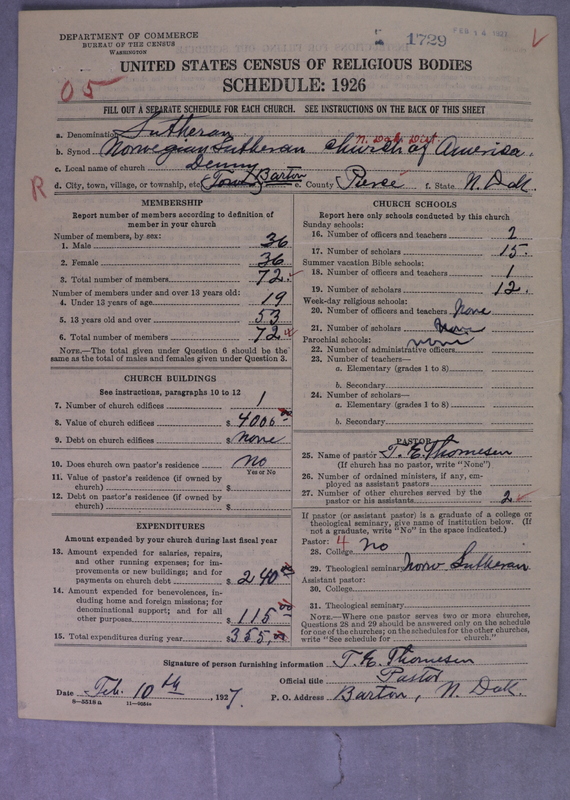 DEPARTMENT OF COMMERCE
BUREAU OF THE CENSUS
WASHINGTON
1729
FEB 14 1927
UNITED STATES CENSUS OF RELIGIOUS BODIES
SCHEDULE: 1926
05
FILL OUT A SEPARATE SCHEDULE FOR EACH CHURCH. SEE INSTRUCTIONS ON THE BACK OF THIS SHEET
a. Denomination Lutheran
N. Dak. Dist.
b. Synod Norwegian Lutheran Church of America.
c. Local name of church Denny
R
d. City, town, village, or township, etc. Barton e. County Pierce f. State N. Dak.
MEMBERSHIP
Report number of members according to definition of member in your church
Number of members, by sex:
1. Male 36
2. Female 36
3. Total number of members 72
Number of members under and over 13 years old:
4. Under 13 years of age 19
5. 13 years old and over 53
6. Total number of members 72
NOTE.—The total given under Question 6 should be the same as the total of males and females given under Question 3.
CHURCH BUILDINGS
See instructions, paragraphs 10 to 12
7. Number of church edifices 1
8. Value of church edifices $ 4000.00
9. Debt on church edifices $ none
10. Does church own pastor's residence No
Yes or No
11. Value of pastor's residence (if owned by church) $
12. Debt on pastor's residence (if owned by church) $
EXPENDITURES
Amount expended by your church during last fiscal year
13. Amount expended for salaries, repairs, and other running expenses; for improvements or new buildings; and for payments on church debt $ 240.00
14. Amount expended for benevolences, including home and foreign missions; for denominational support; and for all other purposes $ 115.00
15. Total expenditures during year $ 355.00
CHURCH SCHOOLS
Report here only schools conducted by this church
Sunday schools:
16. Number of officers and teachers 2
17. Number of scholars 15.
Summer vacation Bible schools:
18. Number of officers and teachers 1
19. Number of scholars 12.
Week-day religious schools:
20. Number of officers and teachers None
21. Number of scholars None
Parochial schools: none
22. Number of administrative officers
23. Number of teachers—
a. Elementary (grades 1 to 8)
b. Secondary
24. Number of scholars—
a. Elementary (grades 1 to 8)
b. Secondary
PASTOR
25. Name of pastor T. E. Thomesen
(If church has no pastor, write "None")
26. Number of ordained ministers, if any, employed as assistant pastors
27. Number of other churches served by the pastor or his assistants 2
If pastor (or assistant pastor) is a graduate of a college or theological seminary, give name of institution below. (If not a graduate, write "No" in the space indicated.)
Pastor: 4
28. College no
29. Theological seminary Norw Lutheran
Assistant pastor:
30. College
31. Theological seminary
NOTE.—Where one pastor serves two or more churches, Questions 28 and 29 should be answered only on the schedule for one of the churches; on the schedules for the other churches, write "See schedule for church."
Signature of person furnishing information T. E. Thomesen
Official title Pastor
Date Feb. 10th, 1927.
P. O. Address Barton, N. Dak.
8—5518a